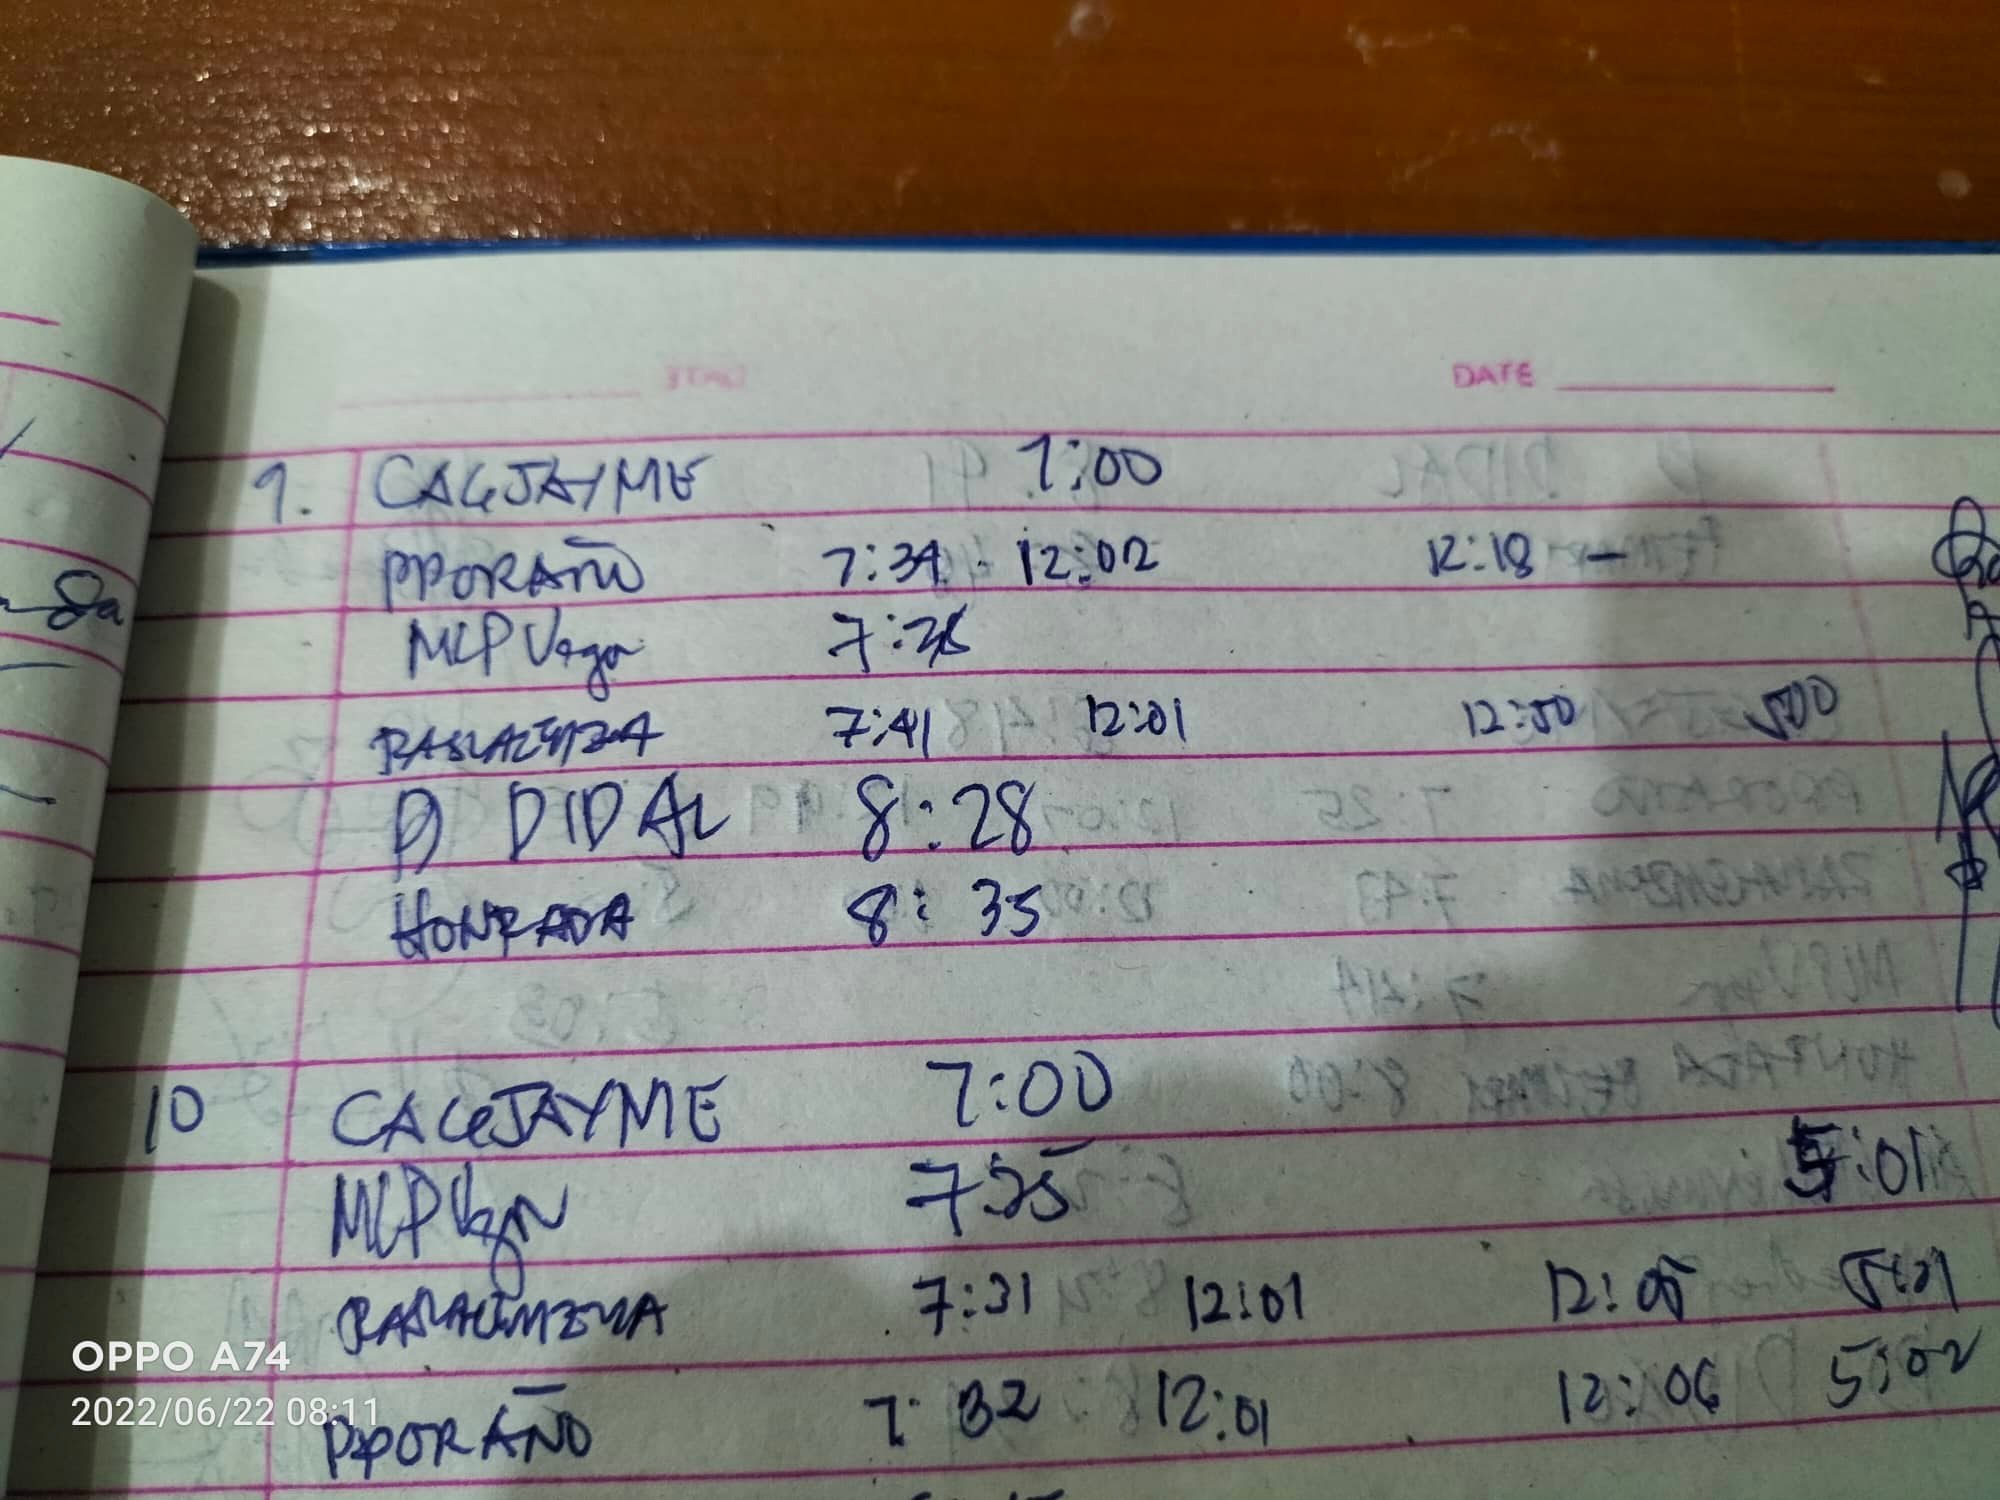 DATE
9. CAGJAYME 7:00
PPORAÑO 7:34 12:02 12:18 -
MLP Vega 7:38
7:41 12:01 12:50 500
D DIDAL 8:28
HONRADA 8:35
10 CAGJAYME 7:00
MLP Vega 7:35 5:01
7:31 12:01 12:05 5:01
PPORAÑO 7:32 12:01 12:06 5:02
OPPO A74
2022/06/22 08:11